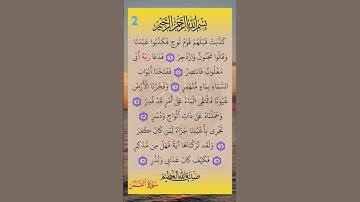 2
بسم الله الرحمن الرحيم
كَذَّبَتْ قَبْلَهُمْ قَوْمُ نُوحٍ فَكَذَّبُوا عَبْدَنَا
وَقَالُوا مَجْنُونٌ وَازْدُجِرَ ۝ فَدَعَا رَبَّهُ أَنِّي
مَغْلُوبٌ فَانتَصِرْ ۝ فَفَتَحْنَا أَبْوَابَ
السَّمَاءِ بِمَاءٍ مُّنْهَمِرٍ ۝ وَفَجَّرْنَا الْأَرْضَ
عُيُونًا فَالْتَقَى الْمَاءُ عَلَى أَمْرٍ قَدْ قُدِرَ ۝
وَحَمَلْنَاهُ عَلَى ذَاتِ أَلْوَاحٍ وَدُسُرٍ ۝
تَجْرِي بِأَعْيُنِنَا جَزَاءً لِّمَن كَانَ كُفِرَ
۝ وَلَقَد تَّرَكْنَاهَا آيَةً فَهَلْ مِن مُّدَّكِرٍ
۝ فَكَيْفَ كَانَ عَذَابِي وَنُذُرِ ۝
صدق الله العظيم
سورة القمر